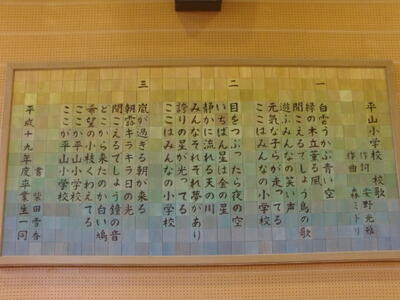 平山小学校 校歌
作詞 安野光雅
作曲 森ミドリ
一
白雲うかぶ青い空
緑の木立薫る風
聞こえるでしょう鳥の歌
遊ぶみんなの笑い声
元気な子らが走ってる
ここはみんなの小学校
二
目をつぶったら夜の空
いちばん星は金の星
静かに流れる天の川
みんなそれぞれ夢があり
誇りの星が光ってる
ここはみんなの小学校
三
嵐が過ぎる朝が来る
朝露キラキラ日の光
聞こえるでしょう鐘の音
どこから来たのか白い鳩
希望の小枝くわえてる
ここが平山小学校
ここが平山小学校
書 柴田雪香
平成十九年度卒業生一同